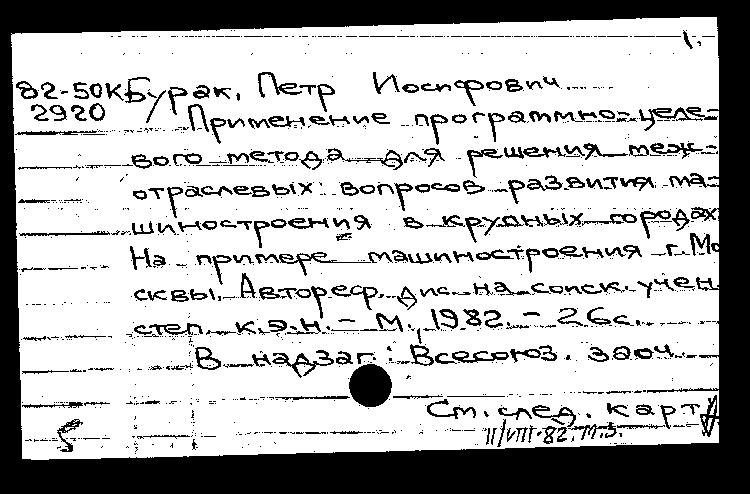 1.
82-50К Бурак, Петр Иосифович.
2920
Применение программно-целе-
вого метода для решения меж-
отраслевых вопросов развития ма-
шиностроения в крупных городах
На примере машиностроения г. Мо
сквы. Автореф. дис. на соиск. учен
степ. к.э.н. – М., 1982. – 26с.
В надзаг.: Всесоюз. заоч.
См. след. карт
II/VIII-82. М.З.